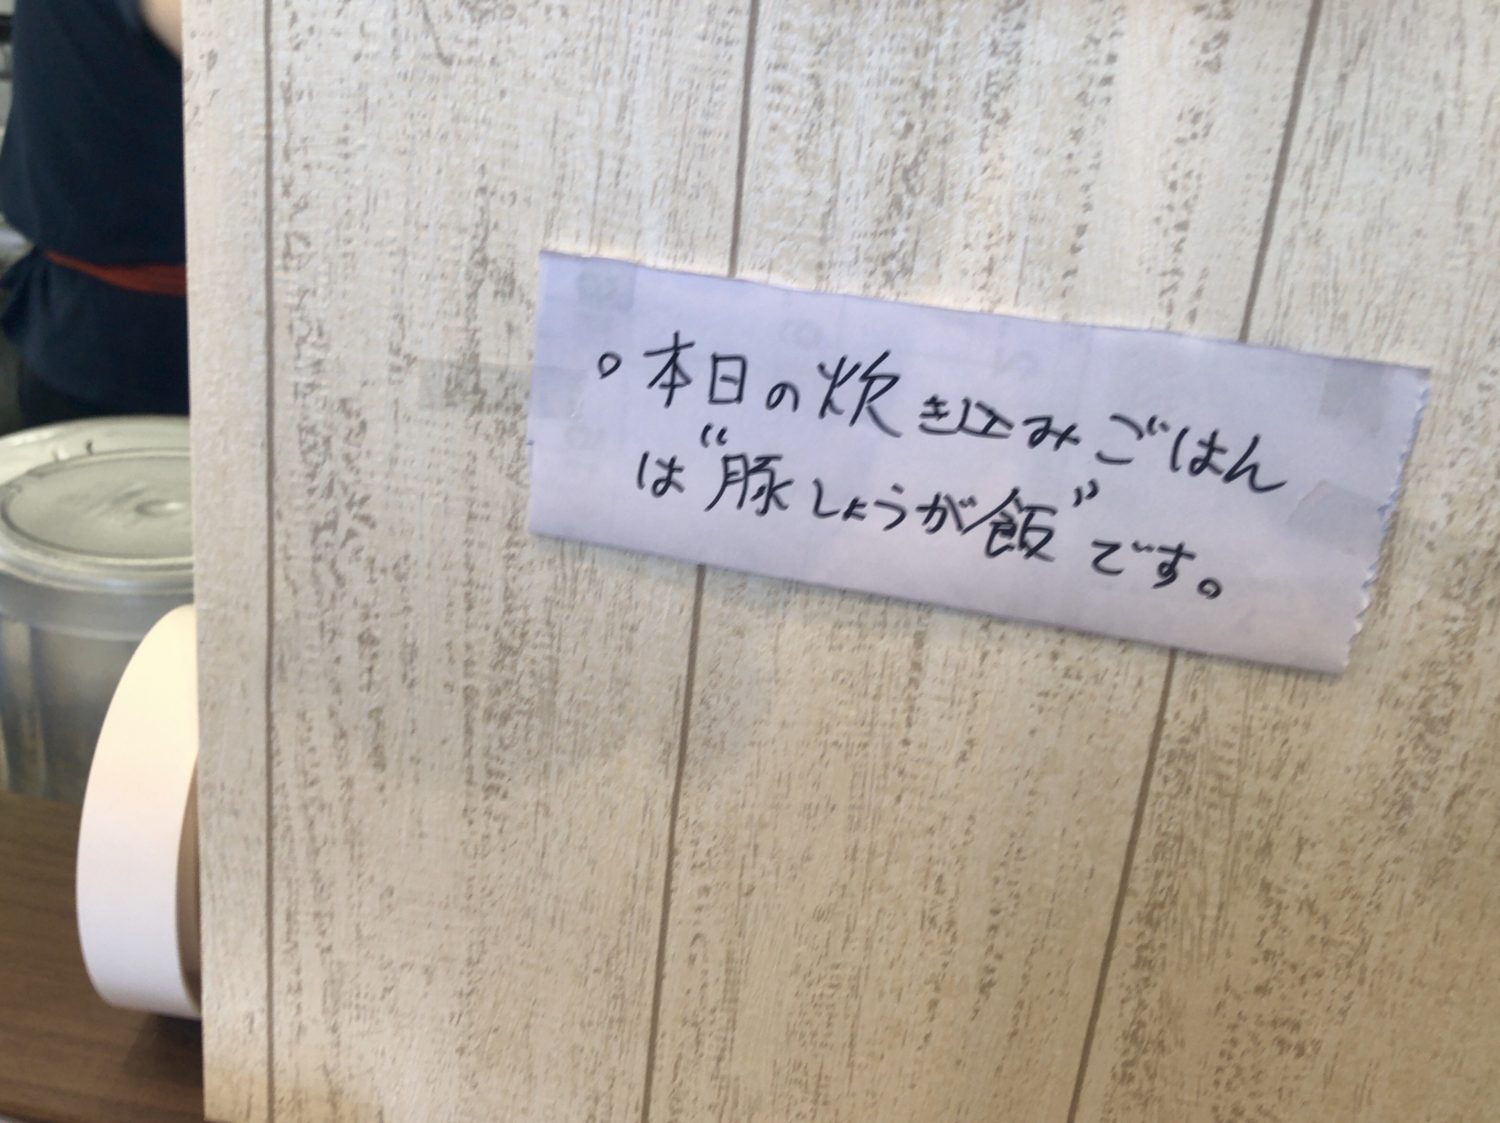 ○本日の炊き込みごはん
は“豚しょうが飯”です。